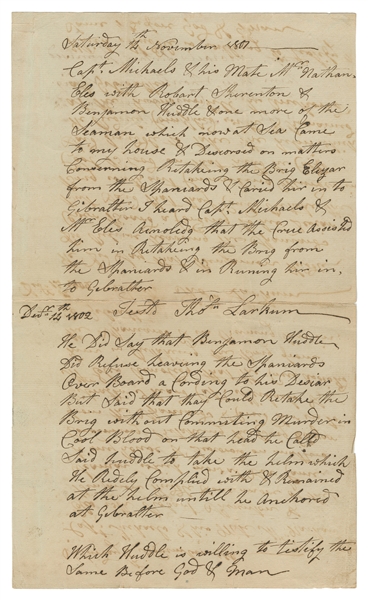 Saturday 14th November 1801
Capt. Michaels & his Mate Mr. Nathan
Eles with Robert Thurenton &
Benjamon Huddle & one more of the
Seaman which now at Sea Came
to my house & Discorsd on matters
Conserning Retakeing the Brig Elizar
from the Spaniards & Caried her in to
Gibralter I heard Capt. Michaels &
Mr. Eles Acnoledg that the Crue Assisted
him in Retakeing the Brig from
the Spaniards & in Runing him in,
to Gibralter
Decr. 14th 1802 Test Thos. Larkum
He Did Say that Benjamon Huddle
Did Refuse heaving the Spaniards
Over Board a Cording to his Desiar
But Said that thay Could Retake the
Brig without Commiting Murder in
Cool Blood on that head he Calld
Said huddle to take the helm which
He Redely Complied with & Remained
at the helm untill he Anchored
at Gibralter
Which Huddle is willing to testify the
Same Before God & Man